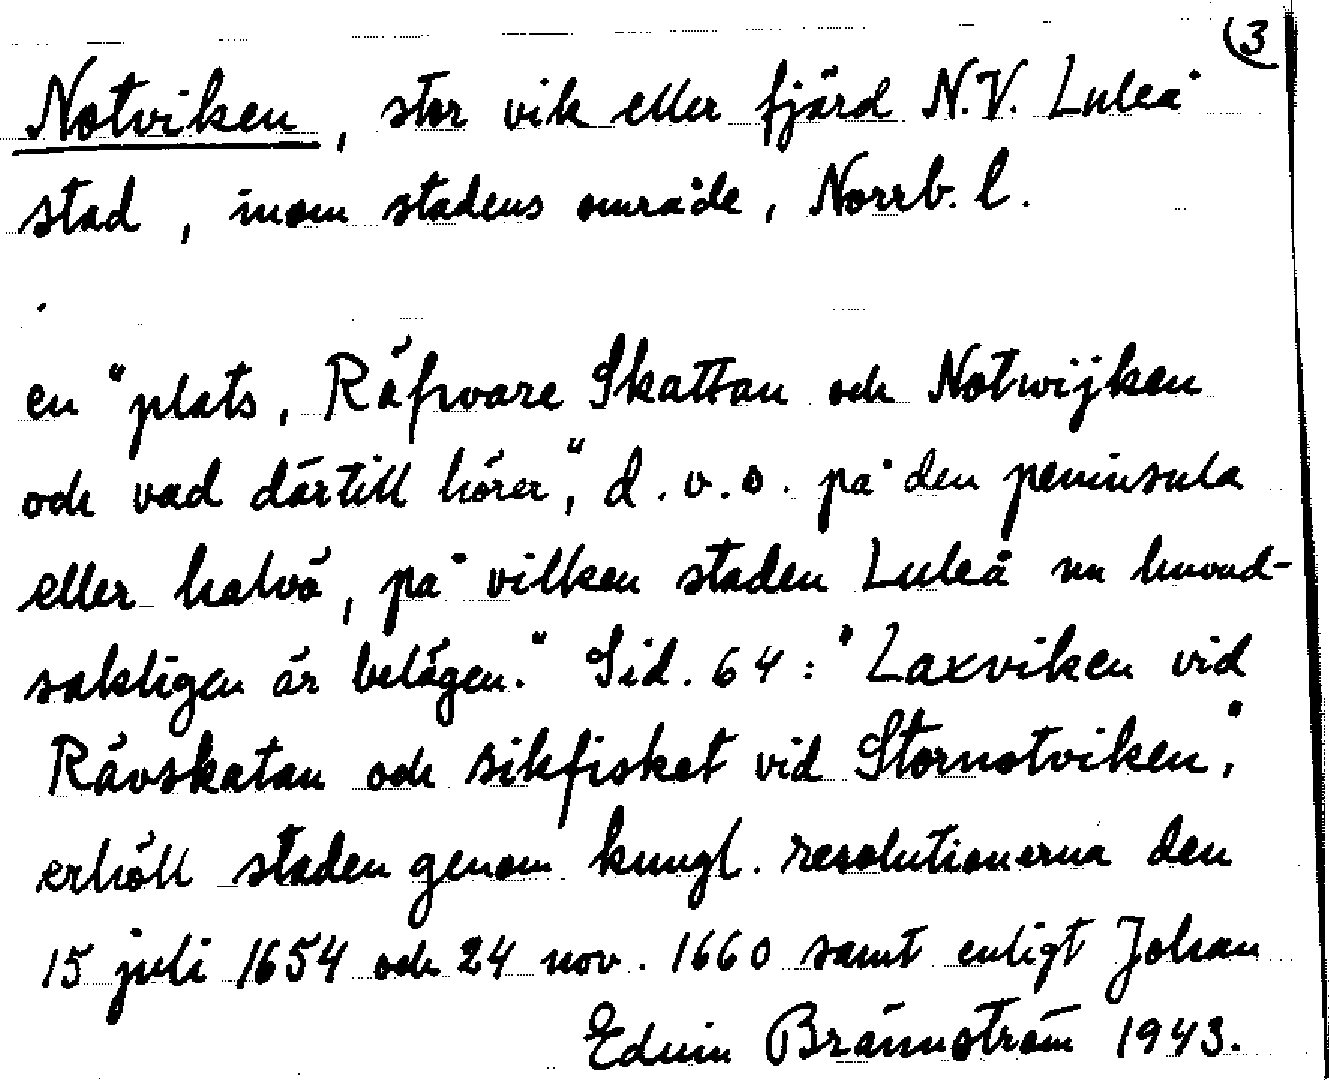 3
Notviken, stor vik eller fjärd N.V. Luleå
stad, inom stadens område, Norrb. l.
en "plats, Räfwars Skattan och Notwijken
och vad därtill hörer", d.v.s. på den peninsula
eller halvö, på vilken staden Luleå nu huvud-
sakligen är belägen." Sid. 64: "Laxviken vid
Rävskatan och sikfisket vid Stornotviken",
erhöll staden genom kungl. resolutionerna den
15 juli 1654 och 24 nov. 1660 samt enligt Johan
Edvin Brännström 1943.